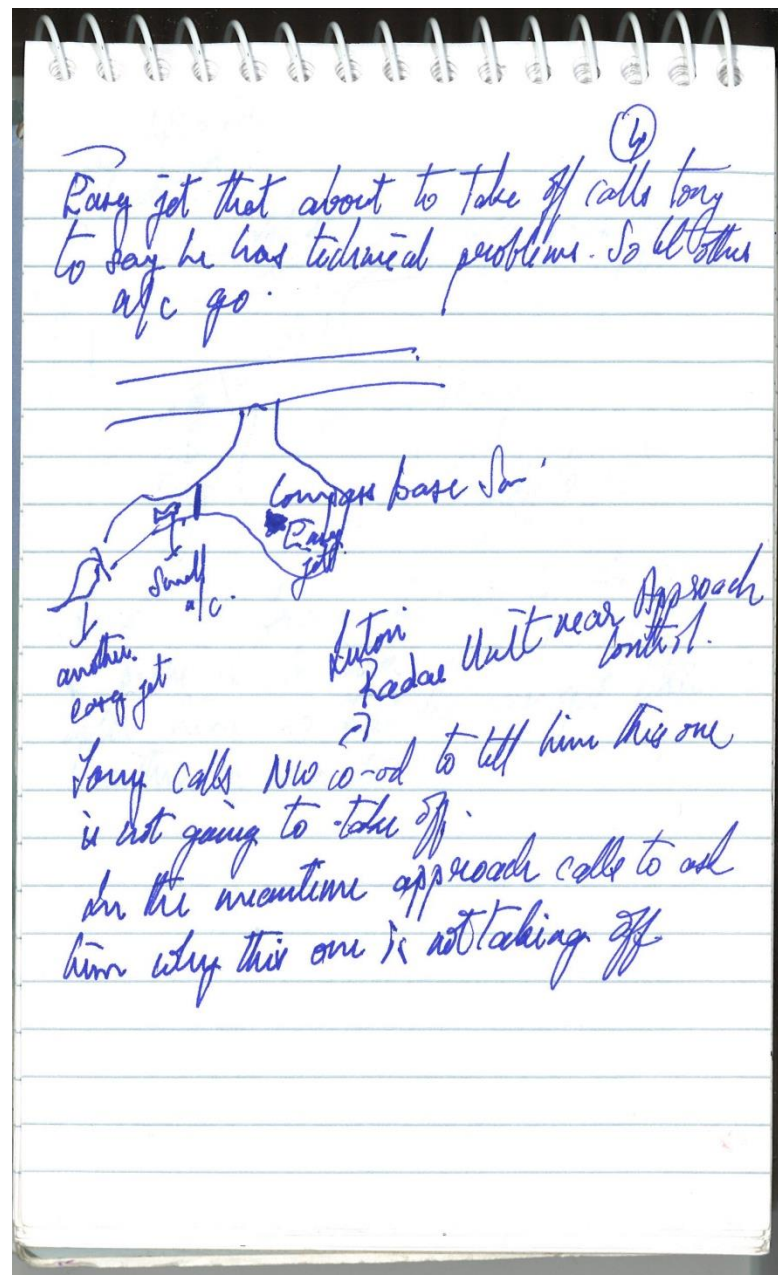 4
Easy jet that about to take off calls Tony
to say he has technical problems. So let other
a/c go.
Compass base
Easy
jet
Small
a/c.
another
easy jet
Luton
Radar Unit near Approach
Control.
Tony calls NW co-od to tell him this one
is not going to take off.
In the meantime approach calls to ask
him why this one is not taking off